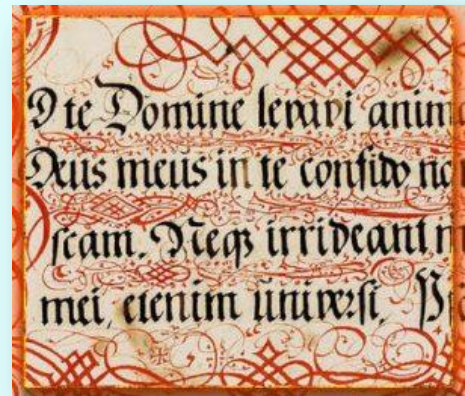 D te Domine levavi anim
Deus meus in te confido
scam. Neqȝ irrideant
mei, etenim universi,